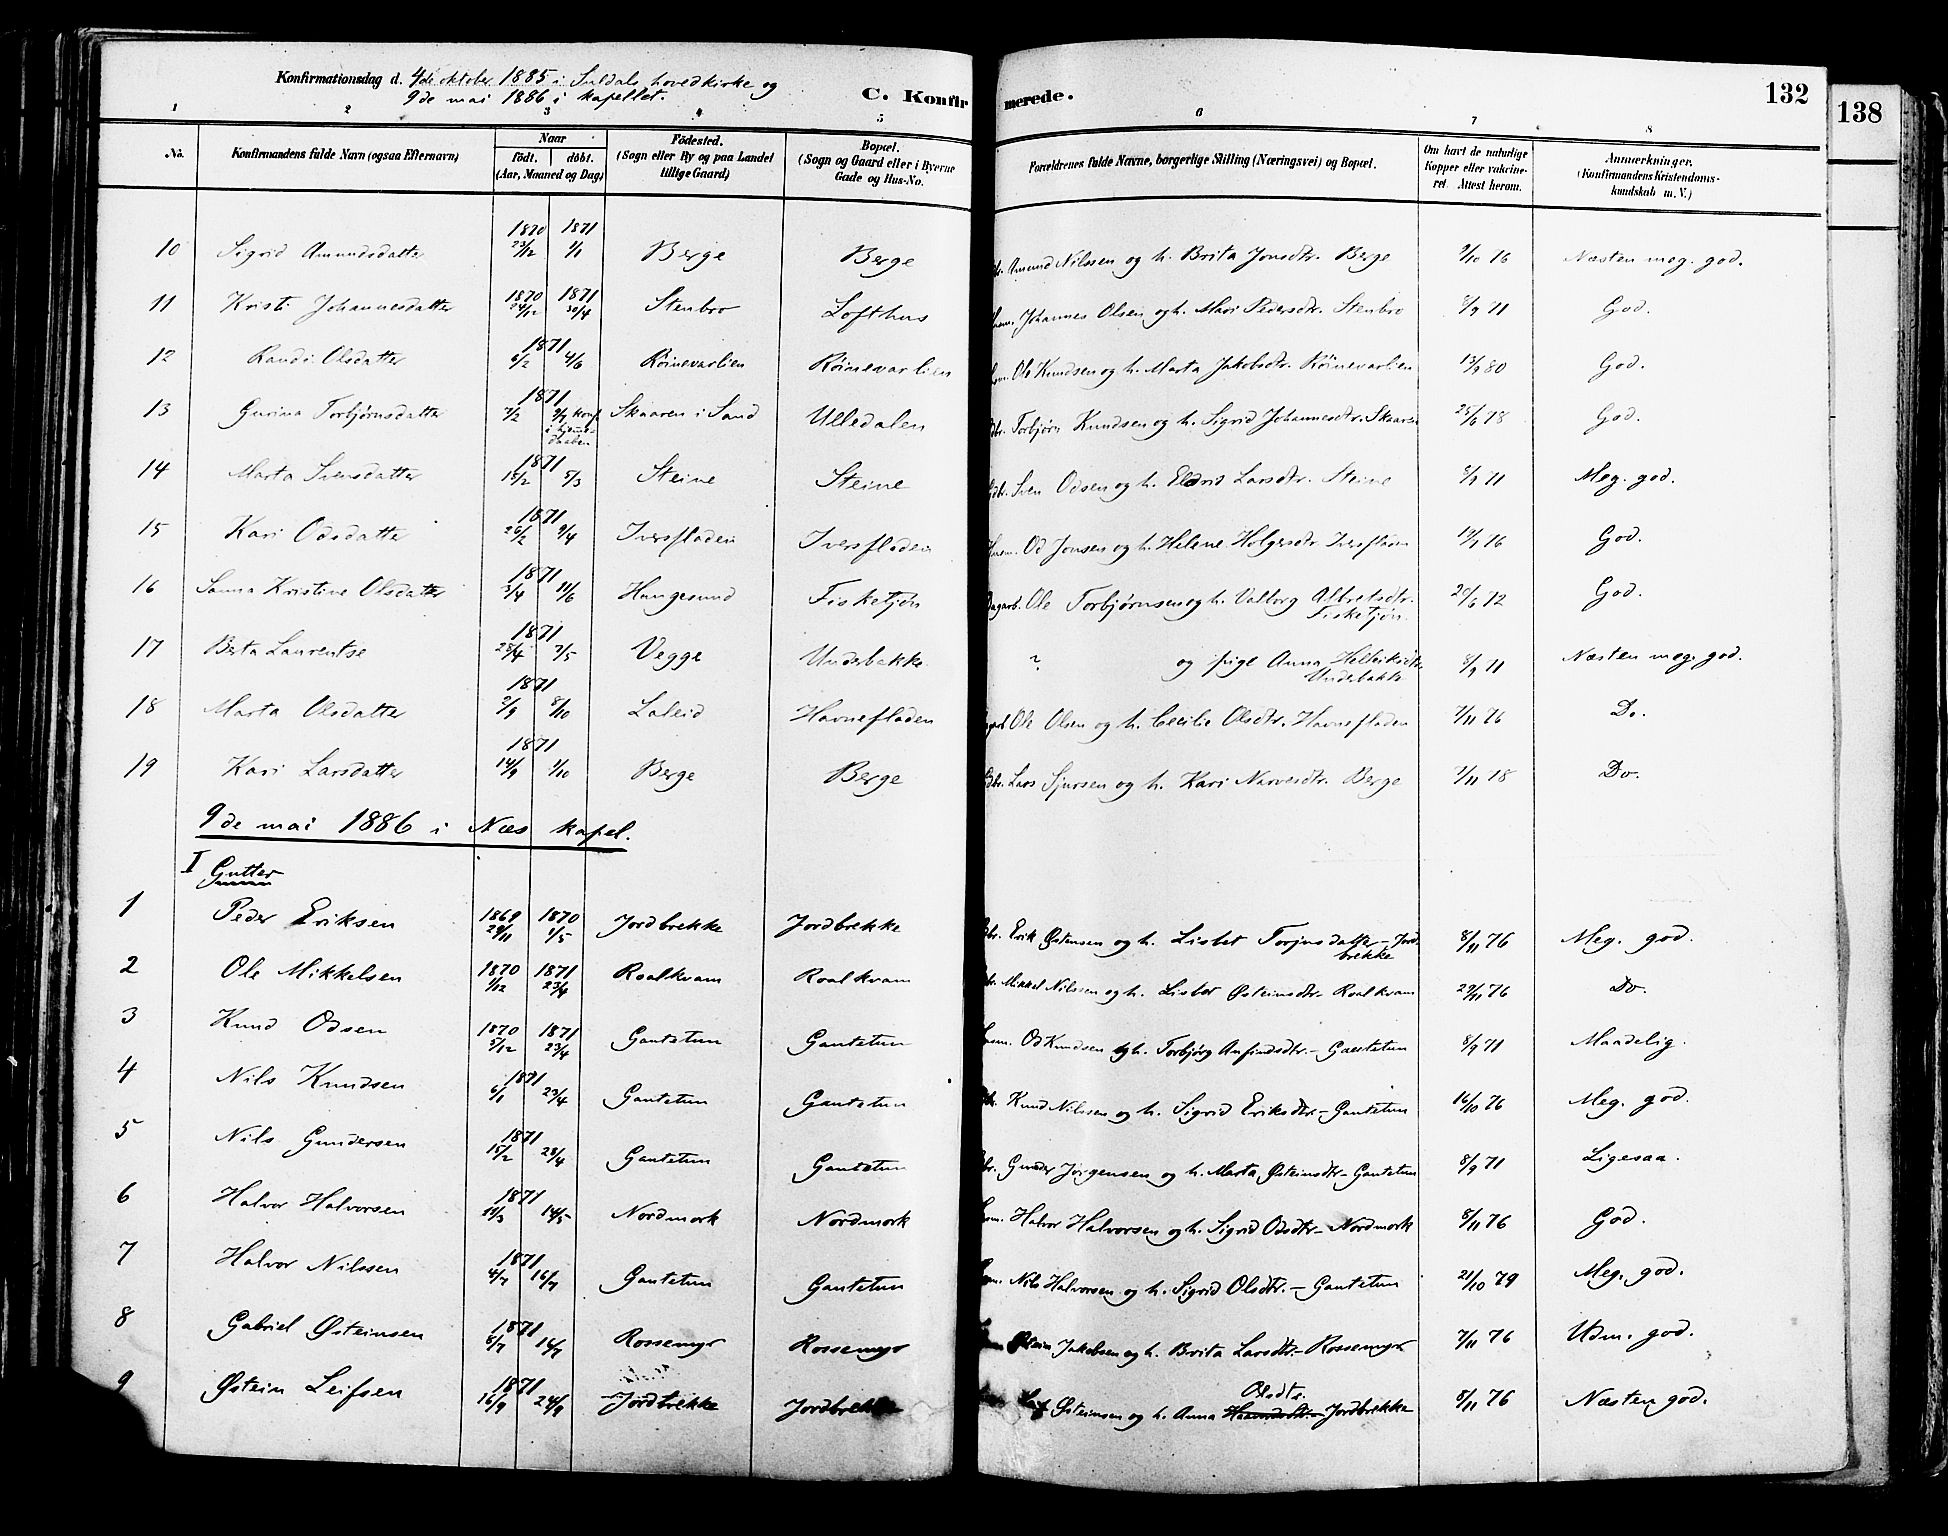 Konfirmationsdag d. 4de oktober 1885 i Suldals hovedkirke og
9de mai 1886 i kapellet.
C. Konfirmerede.
132
138
1 2 3 4 5 6 7 8
No. Konfirmandens fulde Navn (ogsaa Efternavn) Naar födt. döbt. (Aar, Maaned og Dag) Födested. (Sogn eller By og paa Landet tillige Gaard) Bopæl. (Sogn og Gaard eller i Byerne Gade og Hus-No. Forældrenes fulde Navne, borgerlige Stilling (Næringsvei) og Bopæl. Om havt de naturlige Kopper eller vakcineret. Attest herom. Anmærkninger. (Konfirmandens Kristendomskundskab m. V.)
10 Sigrid Amundsdatter 1870 23/12 1871 1/1 Berge Berge Amund Nilssen og h. Brita Jonsdtr. Berge 9/10 76 Næsten meg. god.
11 Kristi Johannesdatter 1870 24/12 1871 30/4 Stenbro Lofthus Johannes Olsen og h. Mari Pedersdtr. Stenbro 8/9 71 God.
12 Randi Olsdatter 1871 6/2 4/6 Röinevarlien Röinevarlien Ole Knudsen og h. Marta Jakobsdtr. Röinevarlien 13/9 80 God.
13 Gurina Torbjørnsdatter 1871 7/2 9/7 Skaaren i Sand Ulledalen Torbjørn Knudsen og h. Sigrid Johannesdtr. Skaaren 25/6 78 God.
14 Marta Svensdatter 1871 15/2 5/3 Steine Steine Sven Odsen og h. Eldris Larsdtr. Steine 8/9 71 Meg. god.
15 Kari Odsdatter 1871 26/2 9/4 Iversfladen Iversfladen Od Jonsen og h. Helene Holgersdtr. Iversfladen 76 God.
16 Sanna Kristine Olsdatter 1871 3/4 11/6 Haugesund Fisketjön Ole Torbjørnsen og h. Valborg Albretsdtr. Fisketjön. 20/6 72 God.
17 Berta Laurentse 1871 25/4 7/5 Vegge Underbakke ? og pige Anna Helleiksdtr. Underbakke 8/9 71 Næsten meg. god.
18 Marta Olsdatter 1871 2/9 8/10 Laleid Havnefladen Ole Olsen og h. Cecilie Olsdtr. Havnefladen 7/11 76 Do.
19 Kari Larsdatter 1871 14/9 1/10 Berge Berge Lars Sjursen og h. Kari Narvesdtr. Berge 7/11 78 Do.
9de mai 1886 i Næs kapel.
I Gutter
1 Peder Eriksen 1869 29/11 1870 1/5 Jordbrekke Jordbrekke Erik Østensen og h. Lisbet Torjusdatter - Jordbrekke 8/11 76 Meg. god.
2 Ole Mikkelsen 1870 1/12 1871 23/4 Roalkvam Roalkvam Mikkel Nilssen og h. Lisbet Østeinsdtr - Roalkvam 29/11 76 Do.
3 Knud Odsen 1870 5/12 1871 23/4 Gautetun Gautetun Od Knudsen og h. Torbjørg Anfindsdtr. - Gautetun 8/9 71 Maadelig.
4 Nils Knudsen 1871 6/1 23/4 Gautetun Gautetun Knud Nilssen og h. Sigrid Eriksdtr. - Gautetun 16/10 76 Meg. god.
5 Nils Gundersen 1871 15/2 23/4 Gautetun Gautetun Gunder Jørgensen og h. Marta Østeinsdtr - Gautetun 8/9 71 Ligesaa.
6 Halvor Halvorsen 1871 19/3 14/5 Nordmork Nordmork Halvor Halvorsen og h. Sigrid Odsdtr - Nordmork 8/11 76 God.
7 Halvor Nilssen 1871 4/7 16/7 Gautetun Gautetun Nils Halvorsen og h. Sigrid Olsdtr. - Gautetun 21/10 79 Meg. god.
8 Gabriel Østeinsen 1871 8/7 16/7 Rossemyr Rossemyr Østein Jakobsen og h. Brita Larsdtr - Rossemyr 7/11 76 Udm. god.
9 Østein Leifsen 1871 16/9 24/9 Jordbrekke Jordbrekke Leif Østeinsen og h. Anna Olsdtr. Jordbrekke 8/11 76 Næsten god.